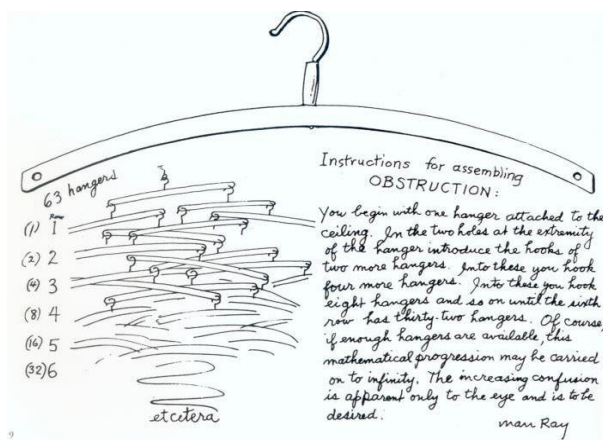 63 hangers
Row
(1) 1
(2) 2
(4) 3
(8) 4
(16) 5
(32) 6
etcetera
Instructions for assembling
OBSTRUCTION:
You begin with one hanger attached to the
ceiling. In the two holes at the extremity
of the hanger introduce the hooks of
two more hangers. Into these you hook
four more hangers. Into these you hook
eight hangers and so on until the sixth
row has thirty-two hangers. Of course,
if enough hangers are available, this
mathematical progression may be carried
on to infinity. The increasing confusion
is apparent only to the eye and is to be
desired.
Man Ray